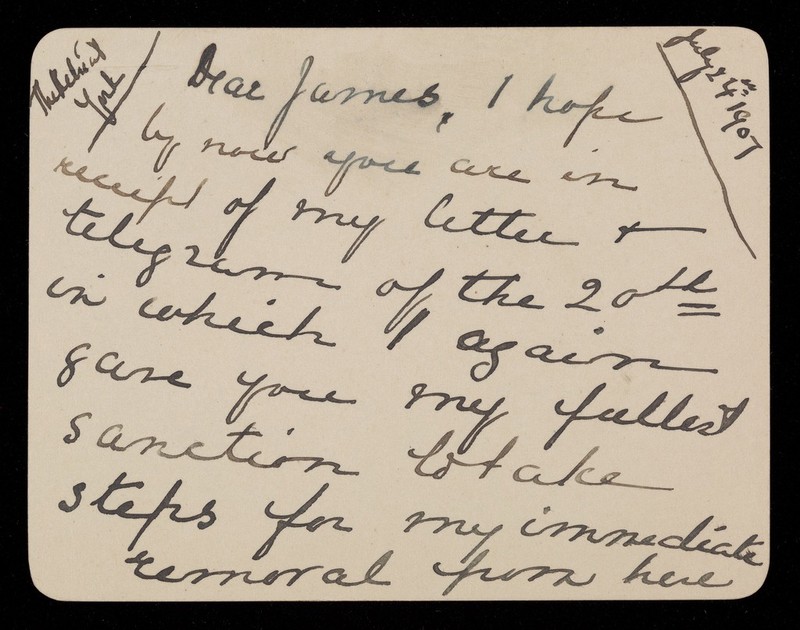 The Retreat
York
July 24th 1907
Dear James, I hope
by now you are in
receipt of my letter +
telegram of the 20th
in which I again
gave you my fullest
sanction to take
steps for my immediate
removal from here